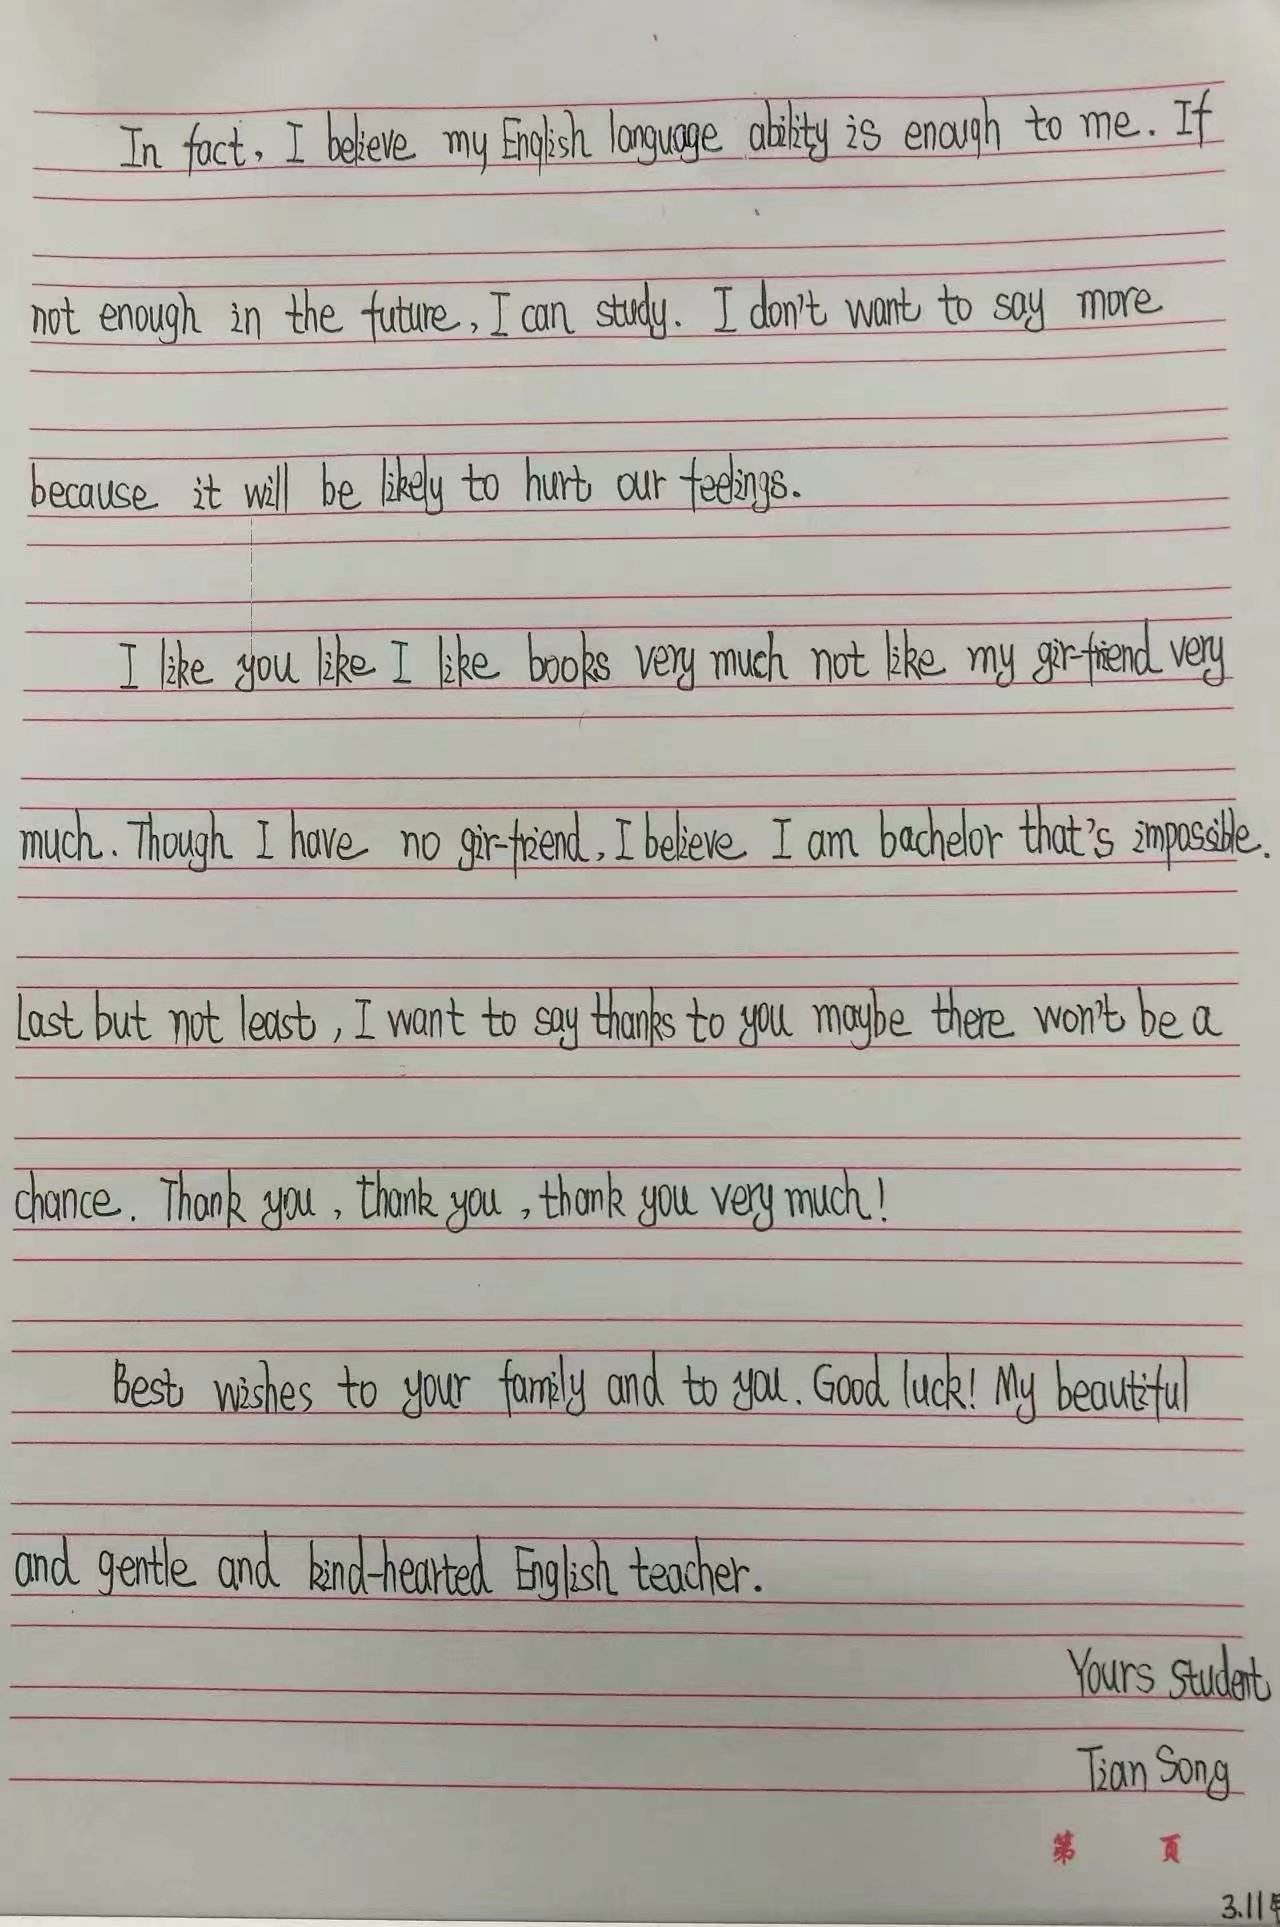 In fact, I believe my English language ability is enough to me. If
not enough in the future, I can study. I don't want to say more
because it will be likely to hurt our feelings.
I like you like I like books very much not like my gir-friend very
much. Though I have no gir-friend, I believe I am bachelor that's impossible.
Last but not least, I want to say thanks to you maybe there won't be a
chance. Thank you, thank you, thank you very much!
Best wishes to your family and to you. Good luck! My beautiful
and gentle and kind-hearted English teacher.
Yours student
Tian Song
第 頁
3.11